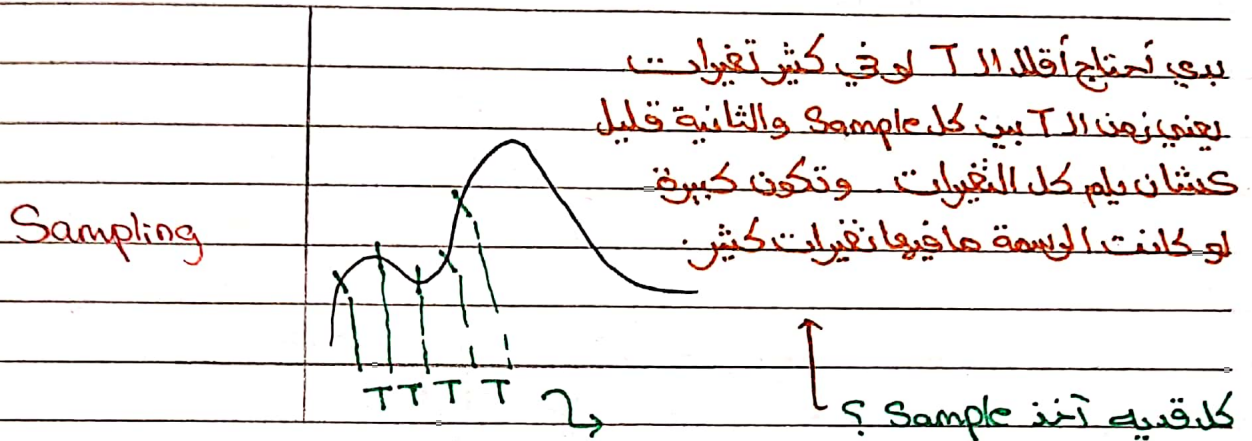 بدي أحتاج أقلل ال T لو في كثير تغيرات
يعني زمن ال T بين كل Sample والثانية قليل
عشان يلم كل التغيرات. وتكون كبيرة
لو كانت الرسمة ما فيها تغيرات كثير.
Sampling
T T T T
كل قديه آخذ Sample ؟